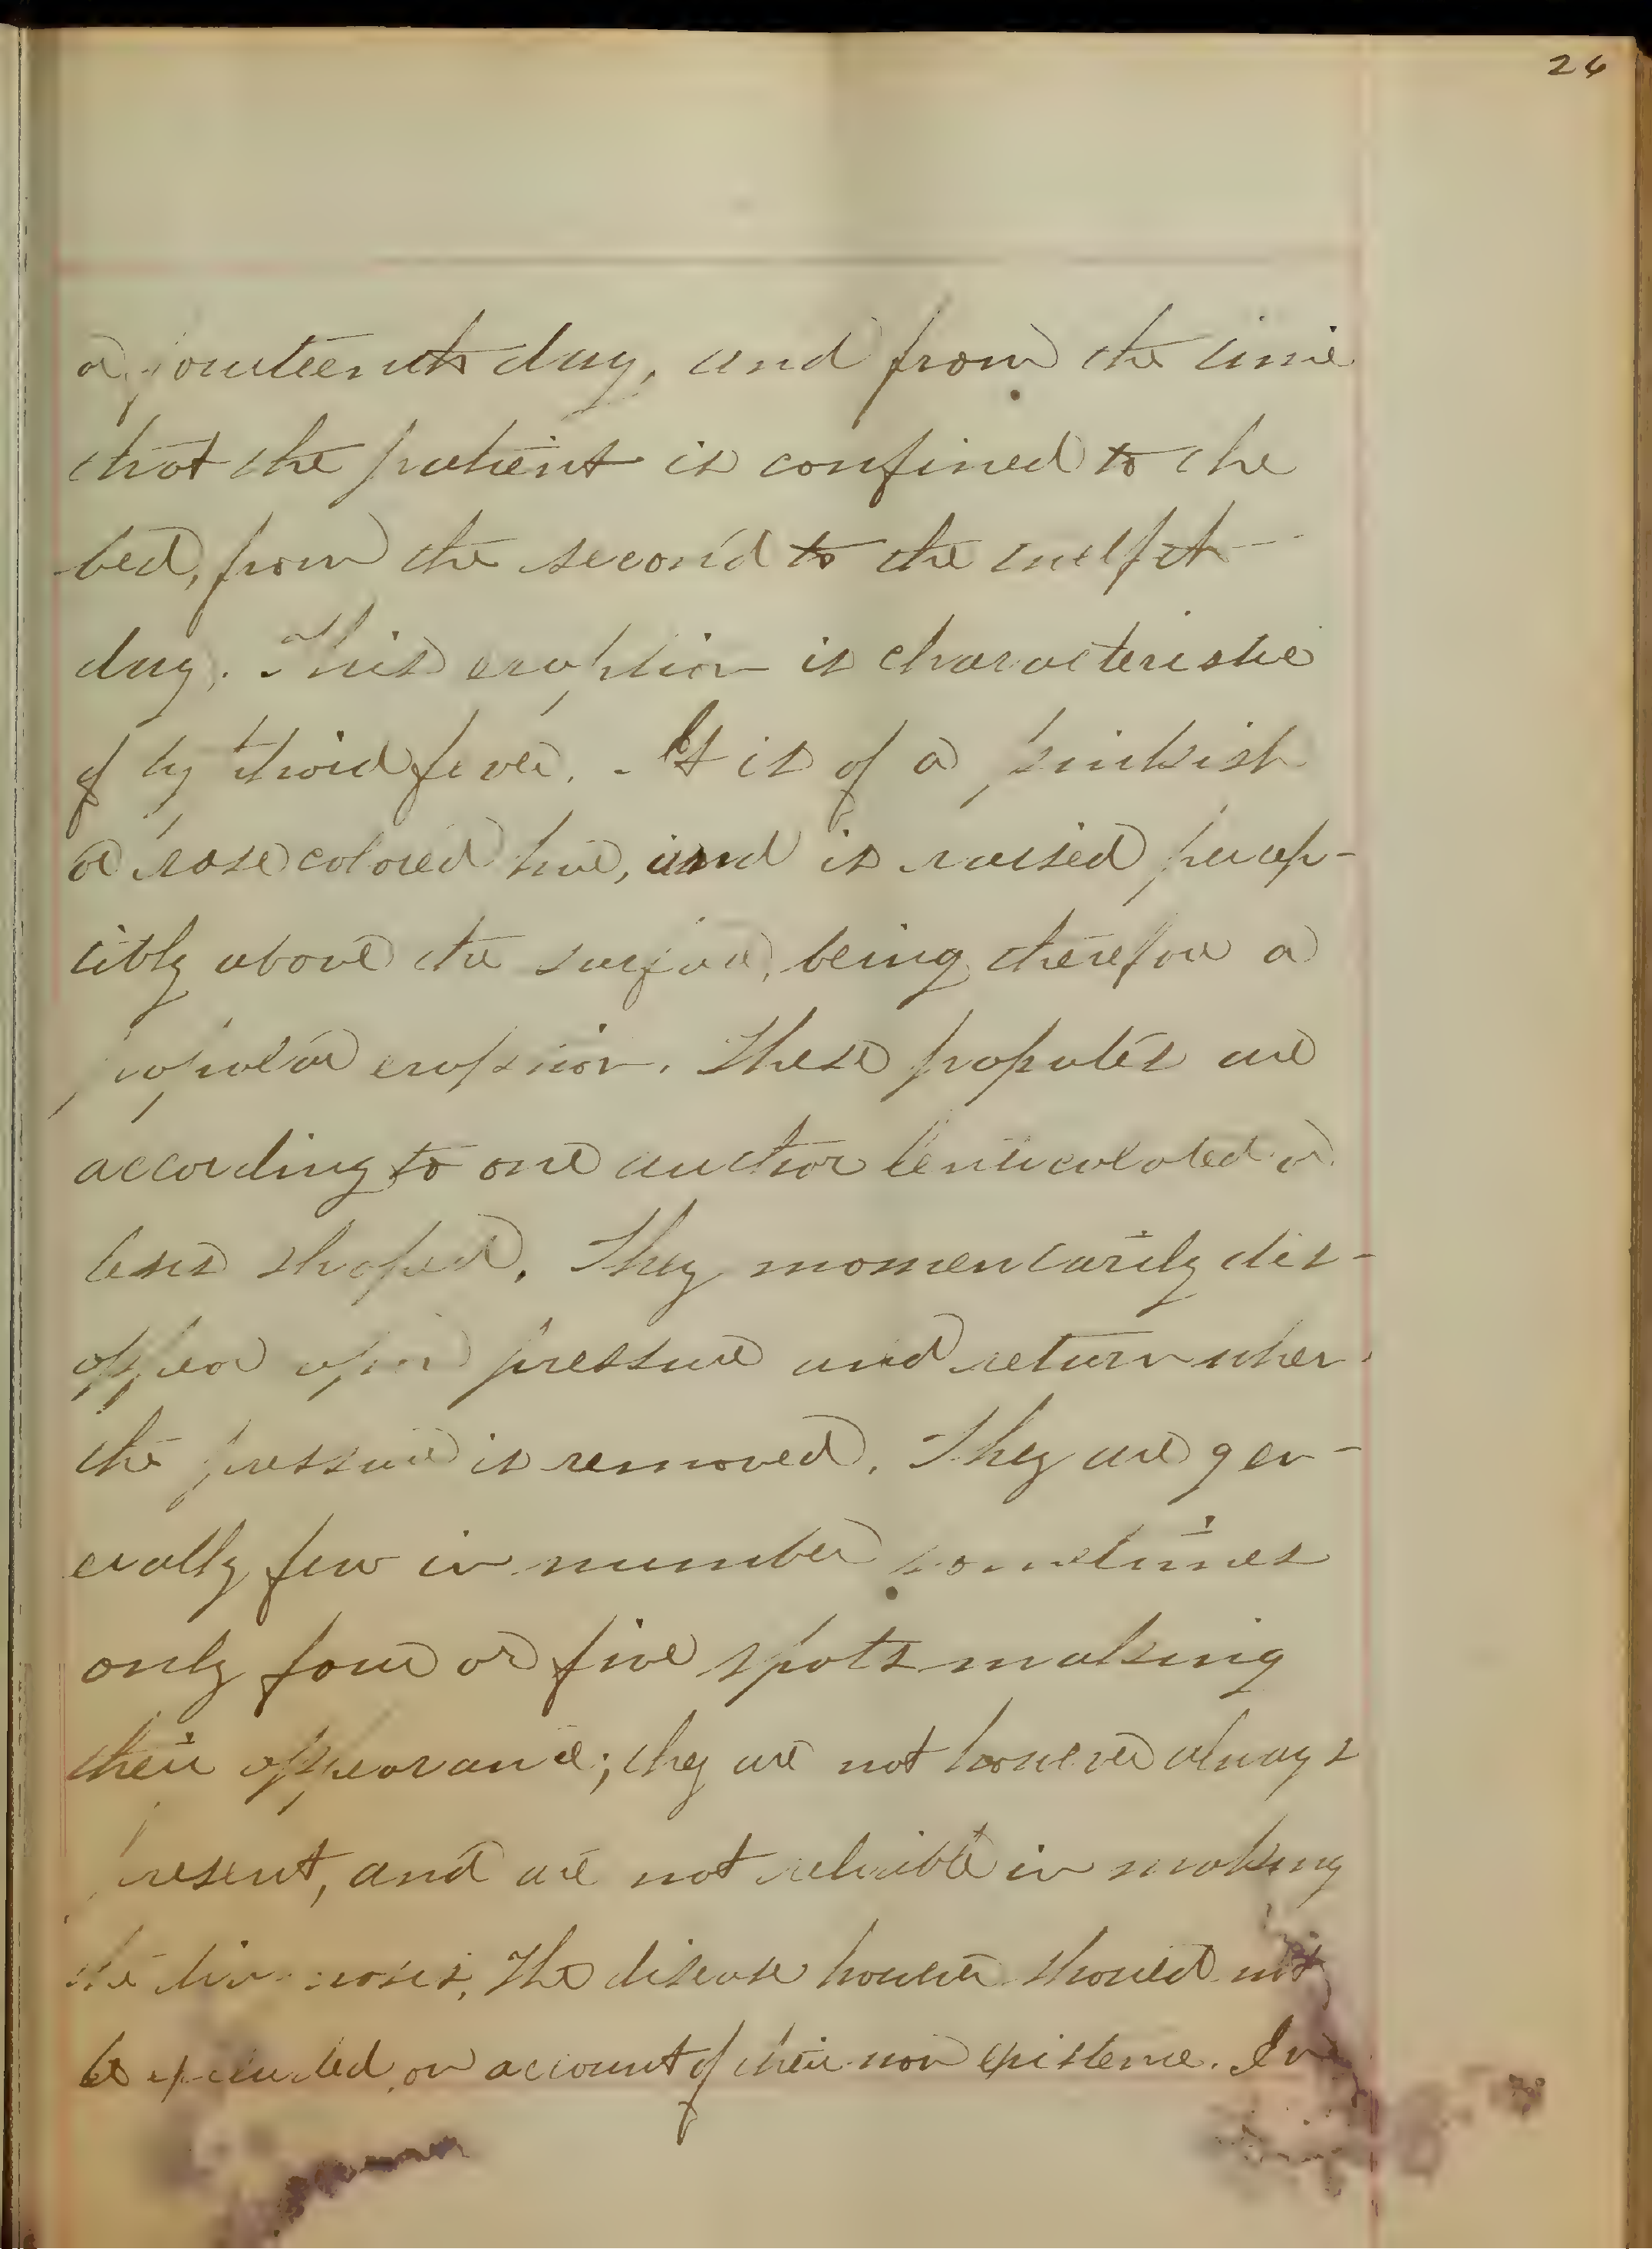 26
or fourteenth day, and from the time
that the patient is confined to the
bed, from the second to the twelfth
day. This eruption is characteristic
of typhoid fever. It is of a pinkish
or rose colored hue, and is raised percep-
tibly above the surface, being therefore a
papular eruption. These papules are
according to one author lenticulated or
lens shaped. They momentarily dis-
appear upon pressure and return when
the pressure is removed. They are gen-
erally few in number sometimes
only four or five spots making
their appearance; they are not however always
present, and are not reliable in making
the diagnosis. The disease however should not
be excluded on account of their non existence. In